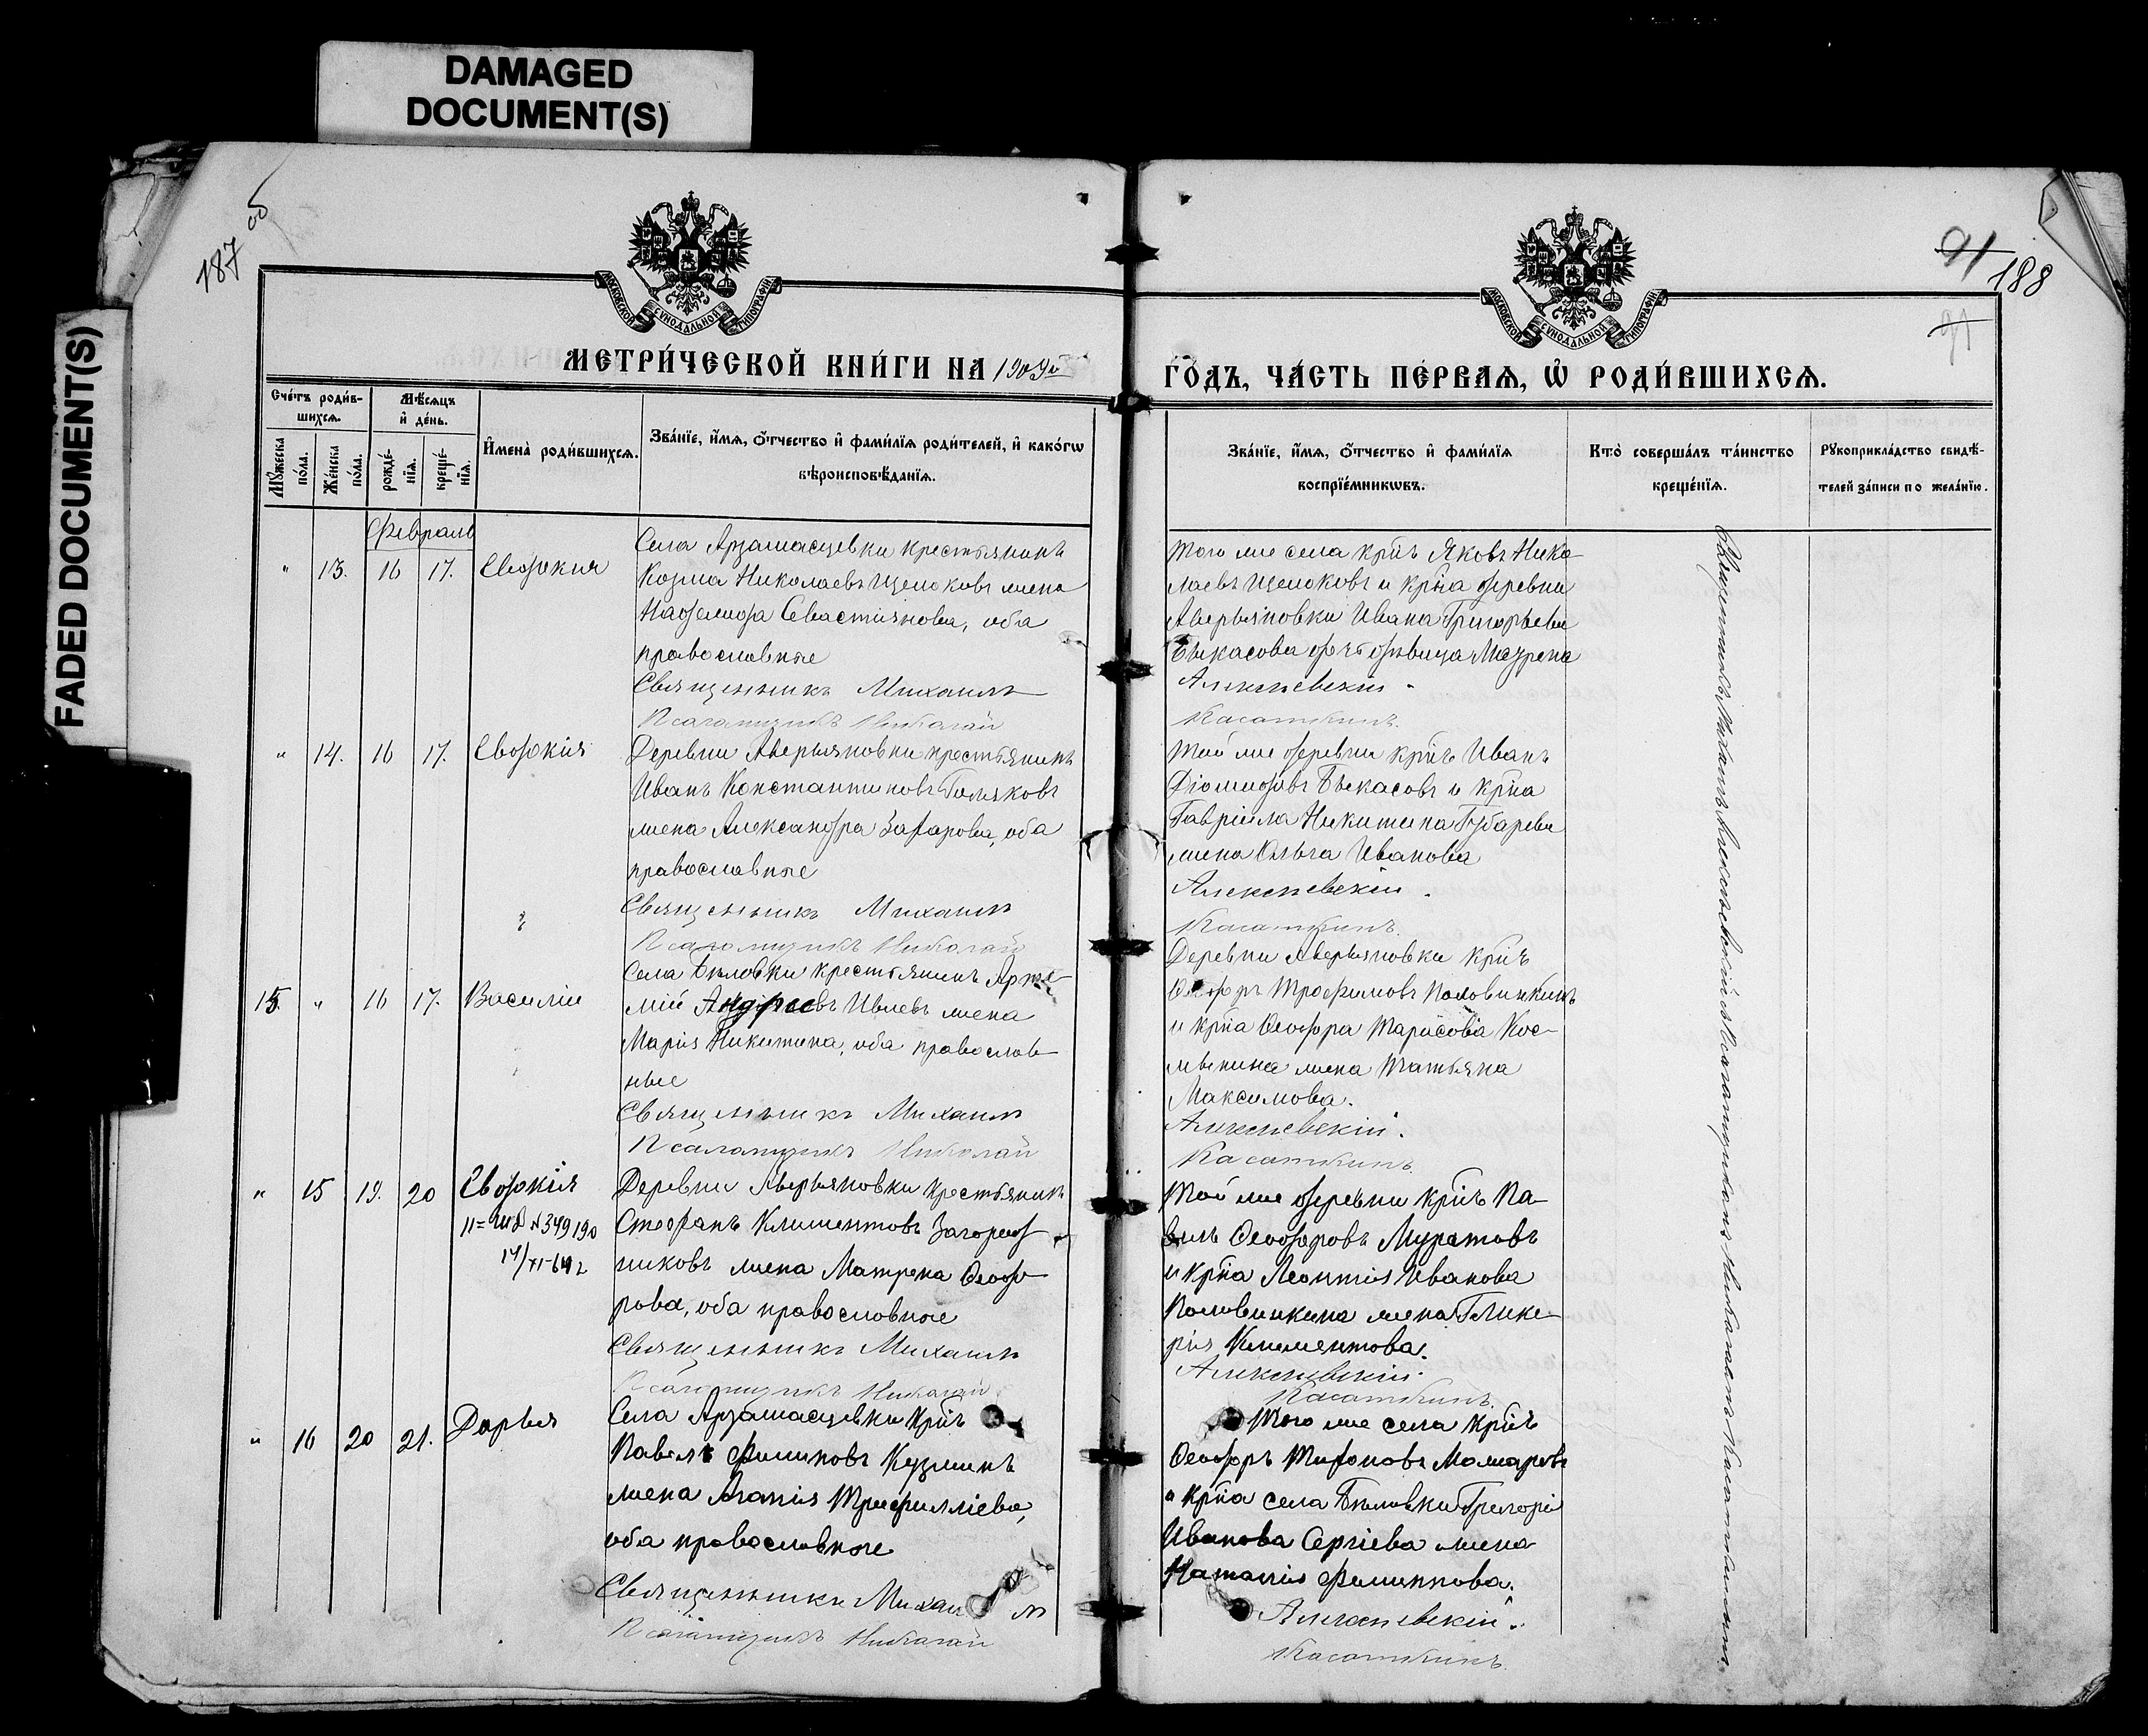 DAMAGED
DOCUMENT(S)
FADED DOCUMENT(S)
187 об
91
188
91
МОСКОВСКОЙ СѴНОДАЛЬНОЙ ТИПОГРАФІИ
МОСКОВСКОЙ СѴНОДАЛЬНОЙ ТИПОГРАФІИ
МЕТРИ́ЧЕСКОЙ КНИ́ГИ НА 1909й
ГО́ДЪ, ЧА́СТЬ ПЕ́РВАѦ, Ѡ҆ РОДИ́ВШИХСѦ.
Сче́тъ роди́в-
шихсѧ.
Мꙋ́жеска по́ла.
Же́нска по́ла.
Мѣ́сѧцъ
и҆ де́нь.
рожде́нїѧ.
креще́нїѧ.
И҆мена̀ роди́вшихсѧ.
Зва́нїе, и҆́мѧ, ѻ҆́тчество и҆ фами́лїѧ роди́телей, и҆ како́гѡ
вѣроисповѣ́данїѧ.
Зва́нїе, и҆́мѧ, ѻ҆́тчество и҆ фами́лїѧ
воспрїе́мникѡвъ.
Кто̀ соверша́лъ та́инство
креще́нїѧ.
Рꙋкоприкла́дство свидѣ́-
телей за́писи по жела́нїю.
Февраль
" 13. 16 17. Евдокия
Села Арзамасцевки крестьянинъ
Козма Николаевъ Щелоковъ жена
Надежда Севастиянова, оба
православные
Священникъ Михаилъ
Псаломщикъ Николай
Того же села крн҃ъ Яковъ Нико-
лаевъ Щелоковъ и крн҃а деревни
Аверьяновки Ивана Григорьева
Бекасова дочь девица Матрена
Алексѣевскій.
Касаткинъ.
" 14. 16 17. Евдокія
Деревни Аверьяновки крестьянинъ
Иванъ Константиновъ Поляковъ
жена Александра Захарова, оба
православные
Священникъ Михаилъ
Псаломщикъ Николай
Той же деревни крн҃ъ Иванъ
Діомидовъ Бекасовъ и крн҃а
Гавріила Никитина Губарева
жена Ольга Иванова
Алексѣевскій.
Касаткинъ.
15. " 16 17. Василій
Села Бѣловки крестьянинъ Арте-
мій Андреевъ Ивлевъ жена
Марія Никитина, оба православ-
ные
Священникъ Михаилъ
Псаломщикъ Николай
Деревни Аверьяновки крн҃ъ
Ѳеодоръ Трофимовъ Половинкинъ
и крн҃а Ѳеодора Кос-
мынина жена Татьяна
Максимова.
Алексѣевскій.
Касаткинъ.
" 15 19. 20 Евдокія
№ 349190
Деревни Аверьяновки крестьянинъ
Стефанъ Климентовъ Загород-
никовъ жена Матрена Ѳеодо-
рова, оба православные
Священникъ Михаилъ
Псаломщикъ Николай
Той же деревни крн҃ъ Па-
велъ Ѳеодоровъ Муратовъ
и крн҃а Леонтія Иванова
Половинкина жена Глике-
рія Климентова.
Алексѣевскій.
Касаткинъ.
" 16 20 21. Дарья
Села Арзамасцевки крн҃ъ
Павелъ Филиповъ Кузминъ
жена Агапія Трифилліева,
оба православные
Священникъ Михаилъ
Псаломщикъ Николай
Того же села крн҃ъ
Ѳеодоръ Тихоновъ Комаровъ
и крн҃а села Бѣловки Григорія
Иванова Сергіева жена
Наталія Филиппова.
Алексѣевскій.
Касаткинъ.
Священникъ Михаилъ Алексѣевскій съ Псаломщикомъ Николаемъ Касаткинымъ.